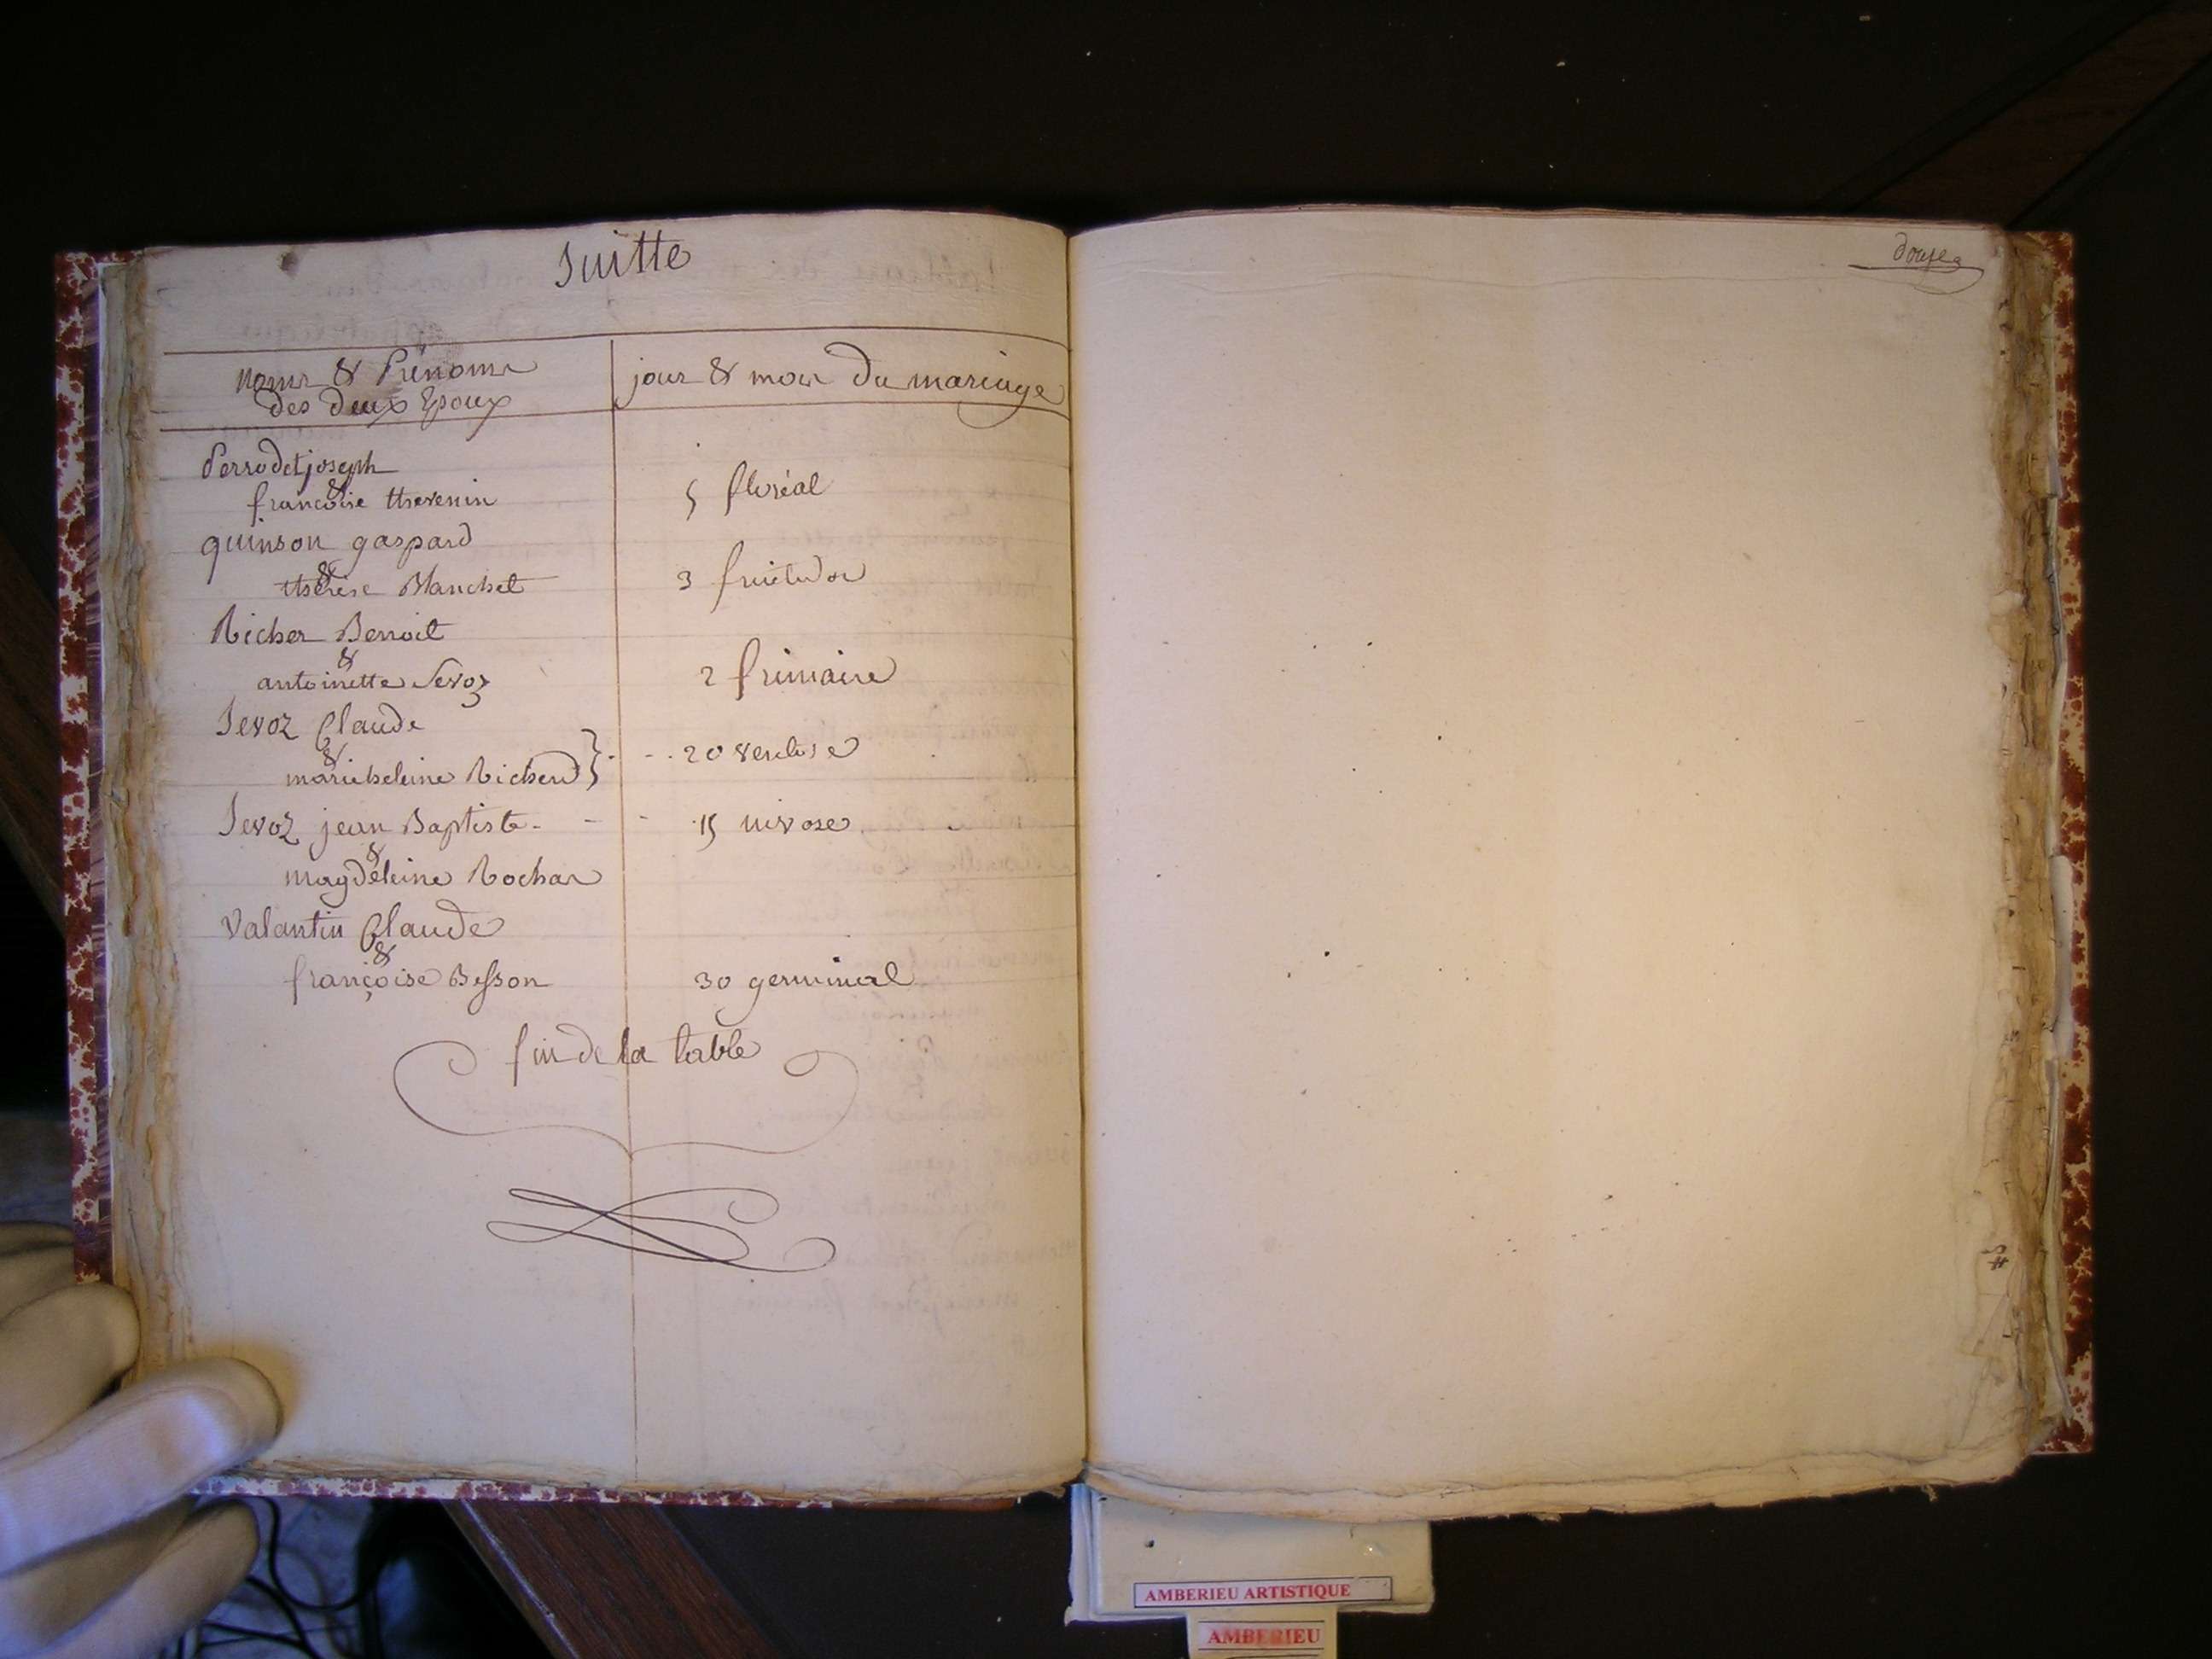 Suitte
noms & Prénoms
des deux Epoux
jour & mois Du mariage
Perrodet joseph
&
francoise thevenin
5 floréal
quinson gaspard
&
thérèse Blanchet
3 fructidor
Richer Benoit
&
antoinette Sevoz
2 frimaire
Sevoz Claude
&
20 ventose
Sevoz jean Baptiste - - - 15 nivose
&
magdeleine Rochar
Valantin Claude
&
françoise Besson
30 germinal
fin de la table
douze
AMBERIEU ARTISTIQUE
AMBERIEU